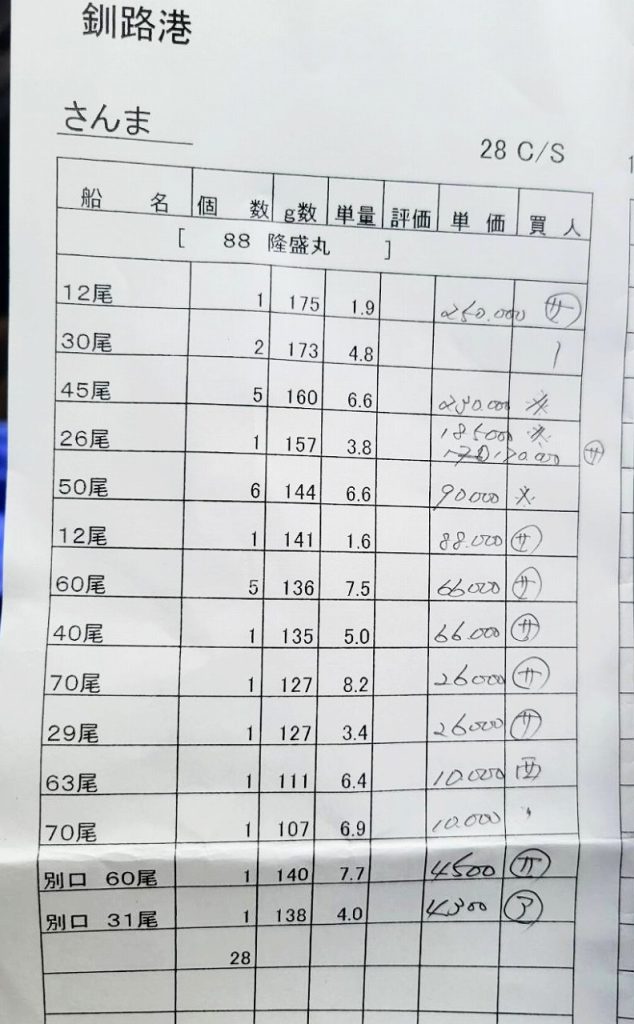 釧路港
さんま
28 C/S
船 名 個 数 g数 単量 評価 単 価 買 人
[ 88 隆盛丸 ]
12尾 1 175 1.9 250.000 サ
30尾 2 173 4.8
45尾 5 160 6.6 230.000
26尾 1 157 3.8 185000 170.000 サ
50尾 6 144 6.6 90.000
12尾 1 141 1.6 88.000 サ
60尾 5 136 7.5 66000 サ
40尾 1 135 5.0 66.000 サ
70尾 1 127 8.2 26000 サ
29尾 1 127 3.4 26000 サ
63尾 1 111 6.4 10.000 西
70尾 1 107 6.9 10.000
別口 60尾 1 140 7.7 4500 サ
別口 31尾 1 138 4.0 4300 ア
28